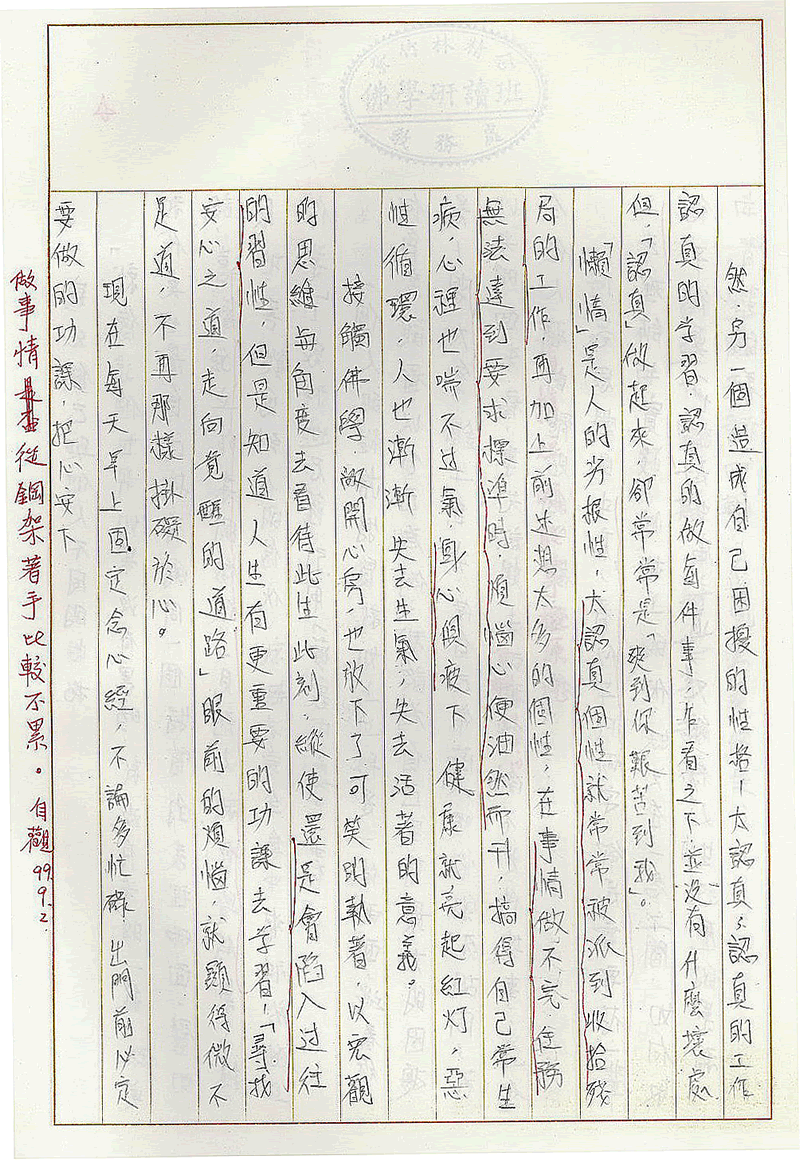 然，另一個造成自己困擾的性格－太認真。認真的工作
認真的學習，認真的做每件事，乍看之下並沒有什麼壞處
但，「認真」做起來，卻常常是「爽到你艱苦到我」。
「懶惰」是人的劣根性，太認真個性就常常被派到收拾殘
局的工作，再加上前述想太多的個性，在事情做不完，任務
無法達到要求標準時，煩惱心便油然而升，搞得自己常生
病，心裡也喘不过氣，身心與疲下 健康就亮起紅灯，惡
性循環，人也漸漸失去生氣，失去活著的意義。
接觸佛學，敞開心房，也放下了可笑的執著，以宏觀
的思維每角度去看待此生此刻，縱使還是會陷入过往
的習性，但是知道人生有更重要的功課去学習，「尋找
安心之道，走向覺醒的道路」眼前的煩惱，就顯得微不
足道，不再那樣掛礙於心。
現在每天早上固定念心經，不論多忙碌 出門前必定
要做的功課，把心安下
做事情 從鋼架著手比較不累。 自觀 99.9.2
竹林精
佛學研讀班
教務